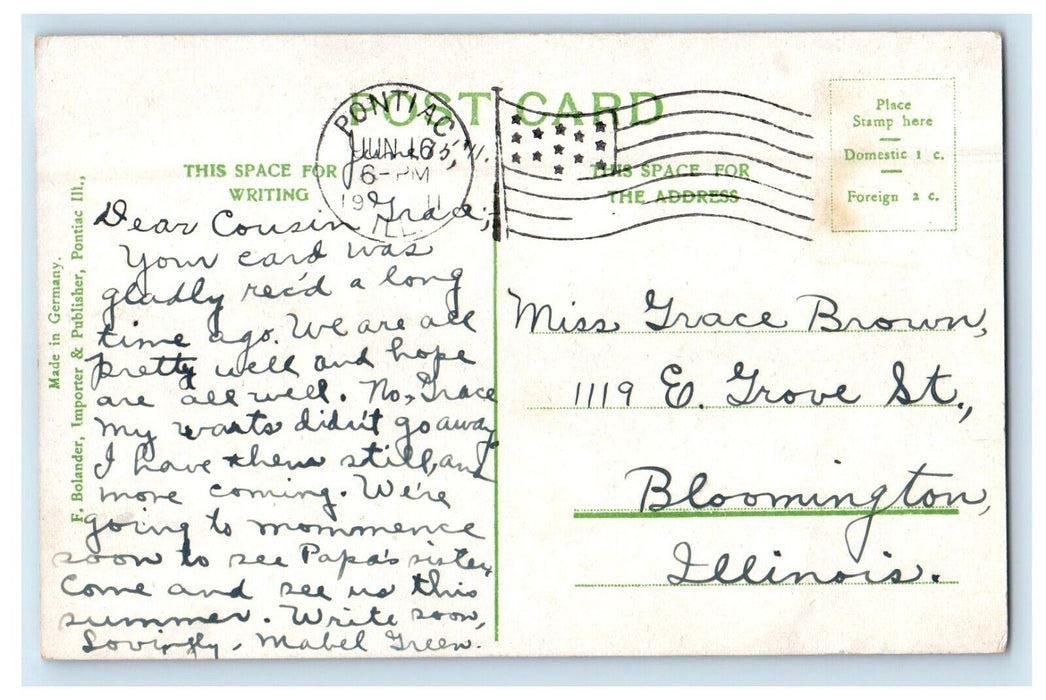 POST CARD
PONTIAC
JUN 16
6-PM
1911
ILL.
Place
Stamp here
Domestic 1 c.
Foreign 2 c.
THIS SPACE FOR
WRITING
THIS SPACE FOR
THE ADDRESS
Made in Germany.
F. Bolander, Importer & Publisher, Pontiac Ill.,
June 15, '11.
Dear Cousin Grace;
Your card was
gladly rec'd a long
time ago. We are all
pretty well and hope
are all well. No, Grace
my warts didn't go away
I have them still, and
more coming. We're
going to mommence
soon to see Papa's sister,
Come and see us this
summer. Write soon,
Lovingly, Mabel Green.
Miss Grace Brown,
1119 E. Grove St.,
Bloomington,
Illinois.